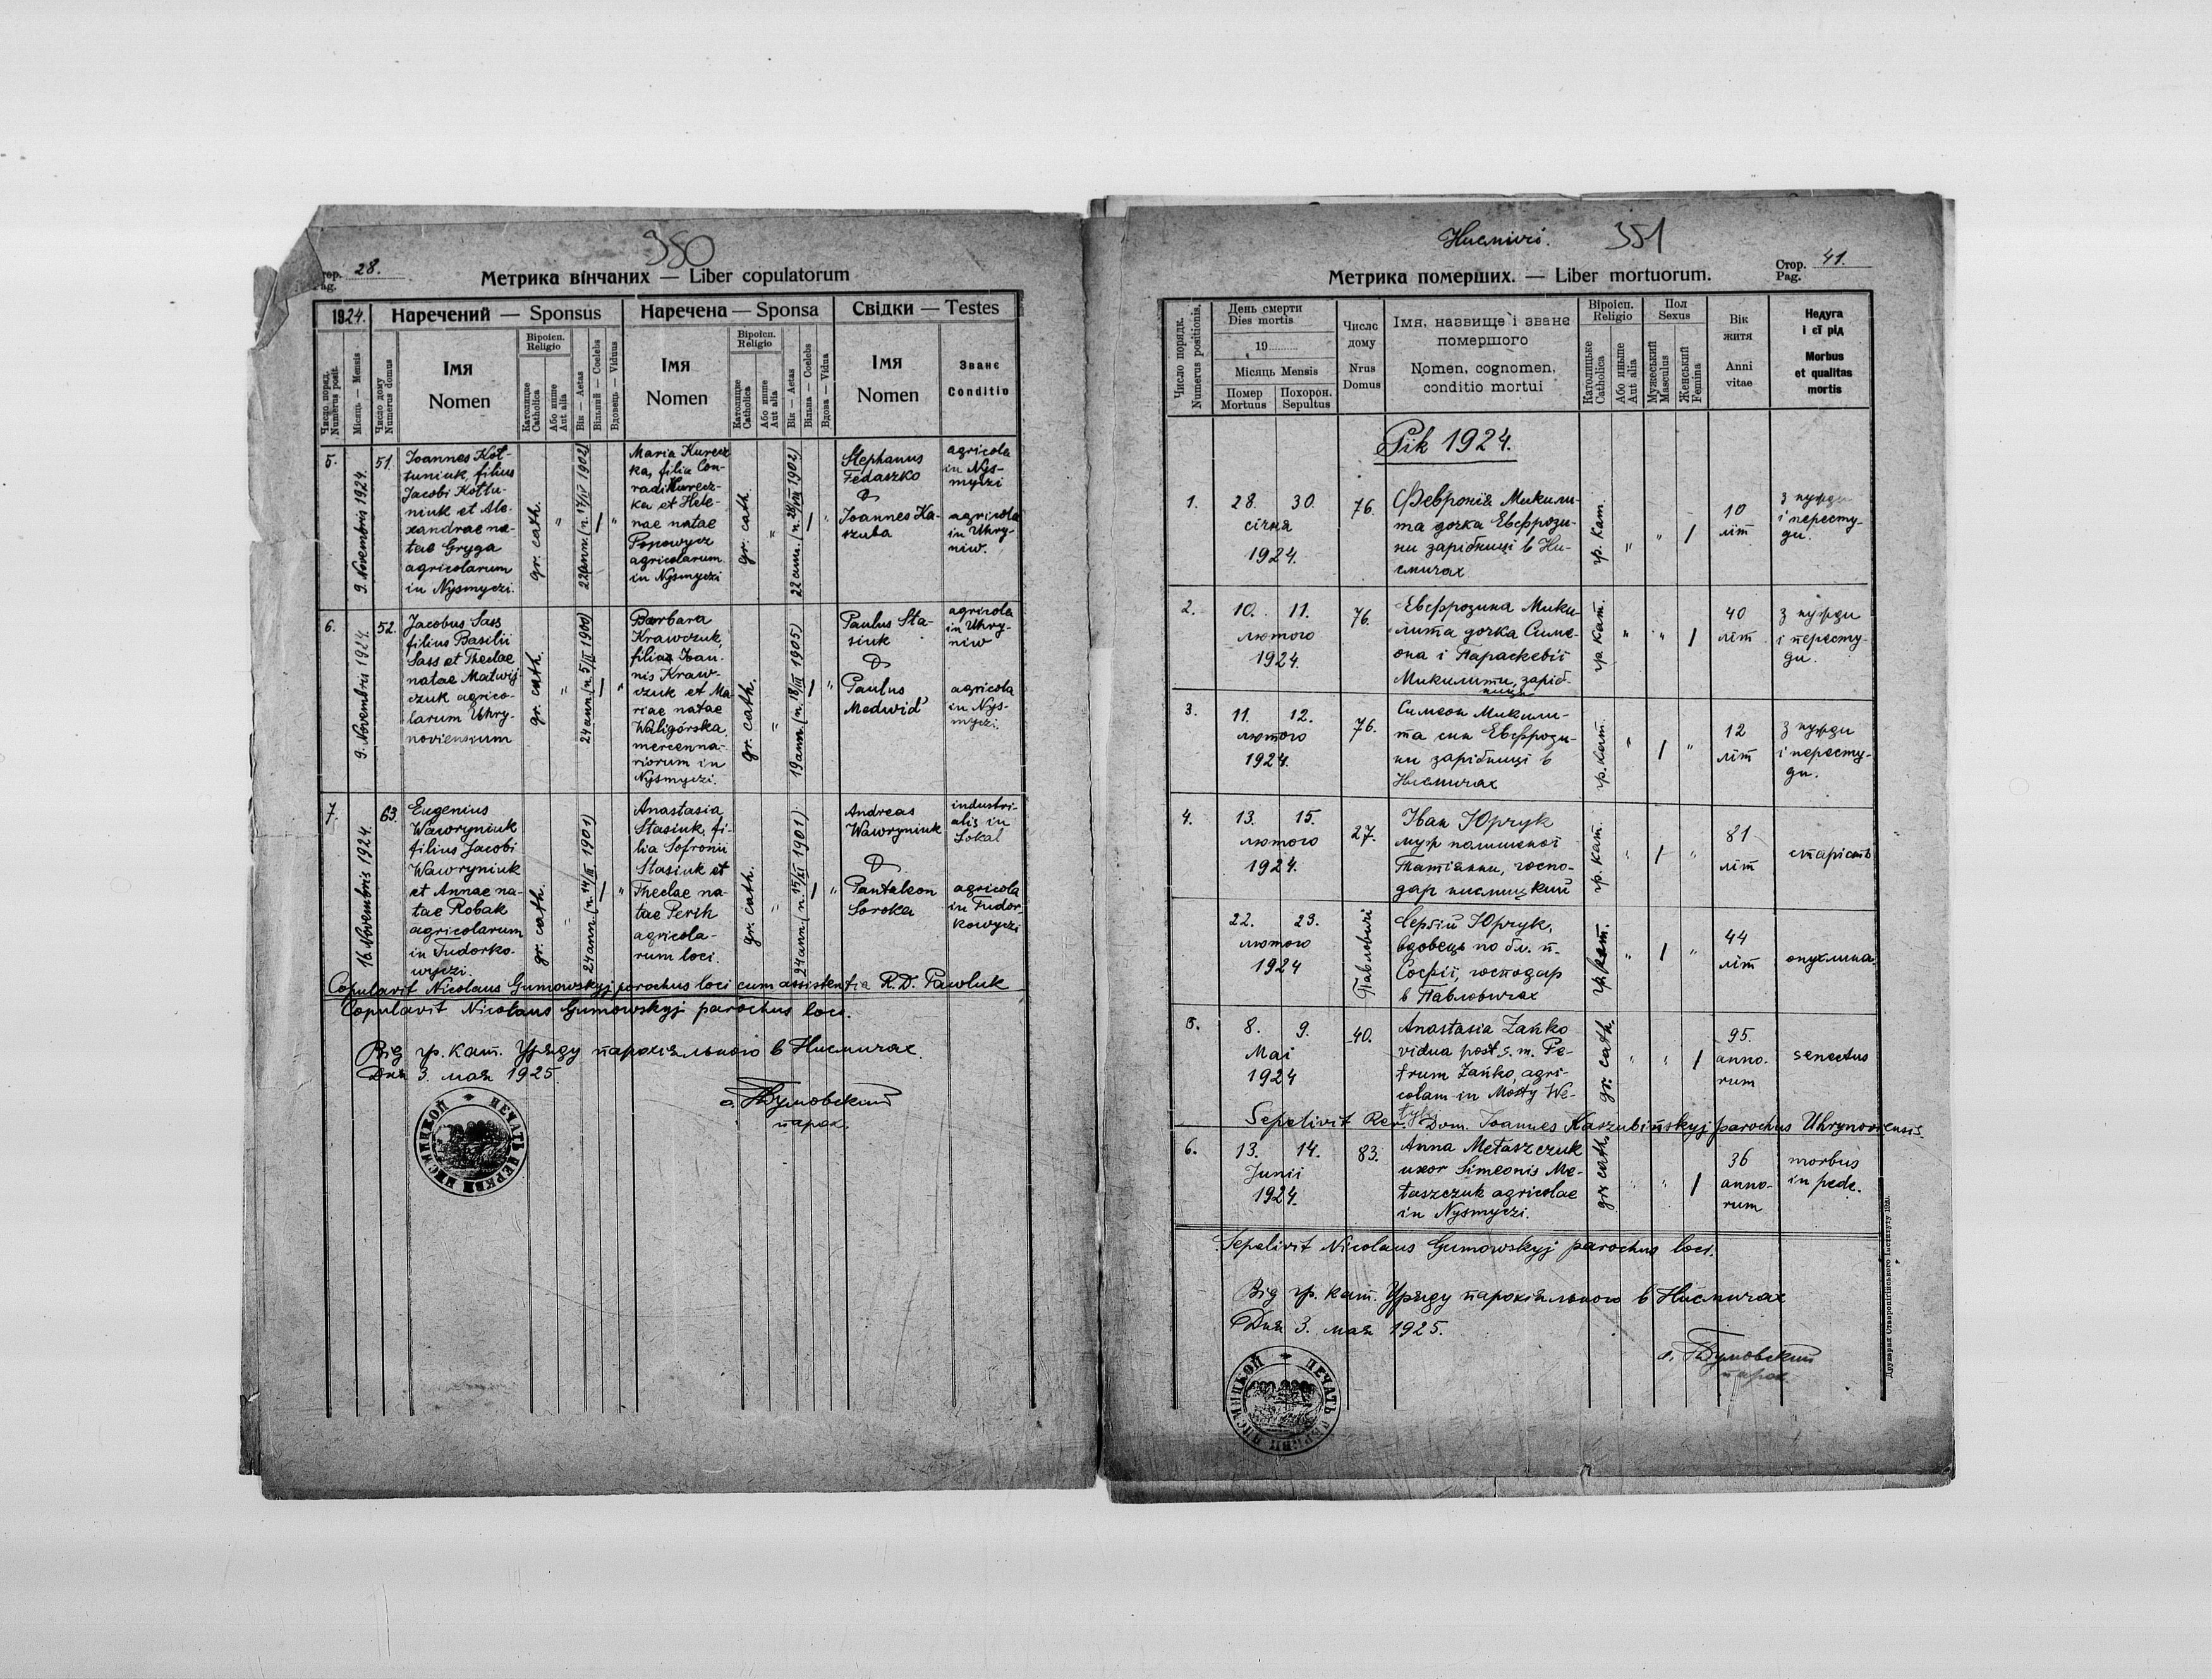 350
Стор. 28.
Pag.
Метрика вінчаних — Liber copulatorum
1924.
Наречений — Sponsus
Наречена — Sponsa
Свідки — Testes
Число поряд.
Numerus posit.
Місяць — Mensis
Число дому
Numerus domus
Імя
Nomen
Віроісп.
Religio
Католицке
Catholica
Або инше
Aut alia
Вік — Aetas
Вільний — Coelebs
Вдовець — Viduus
Імя
Nomen
Віроісп.
Religio
Католицке
Catholica
Або инше
Aut alia
Вік — Aetas
Вільна — Coelebs
Вдова — Vidua
Імя
Nomen
Званє
Conditio
5.
9. Novembris 1924.
51.
Joannes Kot-
tuniuk, filius
Jacobi Kottu-
niuk et Ale-
xandrae na-
tae Gryga
agricolarum
in Nysmyczi.
gr. cath.
"
22 ann. (n. 17/IV 1902)
/
"
Maria Kurecz
ka, filia Con-
radi Kurecz-
ka et Hele-
nae natae
Popowycz
agricolarum
in Nysmyczi
gr. cath.
"
22 ann. (n. 28/VIII 1902)
/
"
Stephanus
Fedaszko
Joannes Ka-
szuba
agricola
in Nys-
myczi
agricola
in Uhry-
niw.
6.
9. Novembris 1924.
52.
Jacobus Sass
filius Basilii
Sass et Theclae
natae Matwij-
czuk agrico-
larum Uhry-
noviensium
gr. cath.
"
24 ann. (n. 5/II 1900)
/
"
Barbara
Krawczuk,
filia Joan-
nis Kraw-
czuk et Ma-
riae natae
Waligórska,
mercenna-
riorum in
Nysmyczi.
gr. cath.
"
19 ann. (n. 18/III 1905)
/
"
Paulus Sta-
siuk
Paulus
Medwid'
agricola
in Uhry-
niw
agricola
in Nys-
myczi.
7.
16. Novembris 1924.
63.
Eugenius
Wawryniuk
filius Jacobi
Wawryniuk
et Annae na-
tae Robak
agricolarum
in Tudorko-
wyczi.
gr. cath.
"
24 ann. (n. 14/III 1901)
/
"
Anastasia
Stasiuk, fi-
lia Sofronii
Stasiuk et
Theclae na-
tae Perih
agricola-
rum loci.
gr. cath.
"
24 ann. (n. 15/VI 1901)
/
"
Andreas
Wawryniuk
Pantaleon
Soroka
industri-
alis in
Sokal
agricola
in Tudor-
kowyczi
Copulavit Nicolaus Gumowskyj parochus loci cum assistentia R. D. Pawluk
Copulavit Nicolaus Gumowskyj parochus loci.
Від гр. кат. Уряду парохіяльного в Нисмичах
Дня 3. мая 1925.
о. Гумовский
парох.
ПЕЧАТЬ ЦЕРКВИ НИСМИЦКОЙ
Нисмичі.
351
Стор. 41.
Pag.
Метрика померших. — Liber mortuorum.
Число порядк.
Numerus positionis.
День смерти
Dies mortis
19
Місяць Mensis
Помер
Mortuus
Похорон.
Sepultus
Число
дому
Nrus
Domus
Імя, назвище і зване
помершого
Nomen, cognomen,
conditio mortui
Віроісп.
Religio
Католицьке
Catholica
Або иньше
Aut alia
Пол
Sexus
Мужеський
Masculus
Женський
Femina
Вік
життя
Anni
vitae
Недуга
і єї рід
Morbus
et qualitas
mortis
Рік 1924.
1.
28. 30.
січня
1924.
76.
Февронія Микили-
та дочка Евфрози-
ни зарібниці в Ни-
смичах
гр. кат.
"
"
/
10
літ
з нужди
і пересту-
ди.
2.
10. 11.
лютого
1924.
76.
Евфрозина Мики-
лита дочка Симе-
она і Параскевії
Микилити, заріб-
ниця
гр. кат.
"
"
/
40
літ
з нужди
і пересту-
ди.
3.
11. 12.
лютого
1924.
76.
Симеон Микили-
та син Евфрози-
ни зарібниці в
Нисмичах
гр. кат.
"
/
"
12
літ
з нужди
і пересту-
ди.
4.
13. 15.
лютого
1924.
27.
Іван Юрчук
муж полишеної
Татіянни, госпо-
дар нисмицкий
гр. кат.
"
/
"
81
літ
старість
22. 23.
лютого
1924
Павловичі
Сергій Юрчук,
вдовець по бл. п.
Софії, господар
в Павловичах
гр. кат.
"
/
"
44
літ
опухлина.
5.
8. 9.
Mai
1924
40.
Anastasia Zańko
vidua post s. m. Pe-
trum Zańko, agri-
colam in Mosty We-
lyki
gr. cath.
"
"
/
95.
anno-
rum
senectus
Sepelivit Rev. Dom. Joannes Kaszubińskyj parochus Uhrynoviensis.
6.
13. 14.
Junii
1924.
83.
Anna Metaszczuk
uxor Simeonis Me-
taszczuk agricolae
in Nysmyczi.
gr. cath.
"
"
/
36
anno-
rum
morbus
in pede.
Sepelivit Nicolaus Gumowskyj parochus loci.
Від гр. кат. Уряду парохіяльного в Нисмичах
Дня 3. мая 1925.
о. Гумовский
парох.
ПЕЧАТЬ ЦЕРКВИ НИСМИЦКОЙ
Друкарня Ставропігійського Інституту 1921.